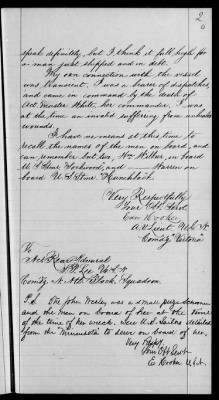 2
speak definitely, but I think it full high for
a man just shipped and in debt.
My own connection with the vessel
was transient, I was a bearer of dispatches,
and came in command by the death of
Act. Master White, her commander. I was
at the time an invalid suffering from
wounds.
I have no means at this time to
recall the names of the men on board, and
can remember but two, Wm Wilbur, on board
U.S. Str Lockwood, and Warren on
board U.S. Stmr Hunchback.
Very Respectfully
Your Obt Servt
Edw Hooker
A.V. Lieut U.S.N
Comdg Victoria
To
Act Rear Admiral
S.P. Lee U.S.N
Comdg N. Atl. Block. Squadron.
P.S. The John Wesley was a small prize schooner
and the men on board of her at the time
of the time of her wreck, were U.S. Sailors detailed
from the "Minnesota" to serve on board of her.
Very Respt.
Your Obt Servt
E. Hooker U.S.N.